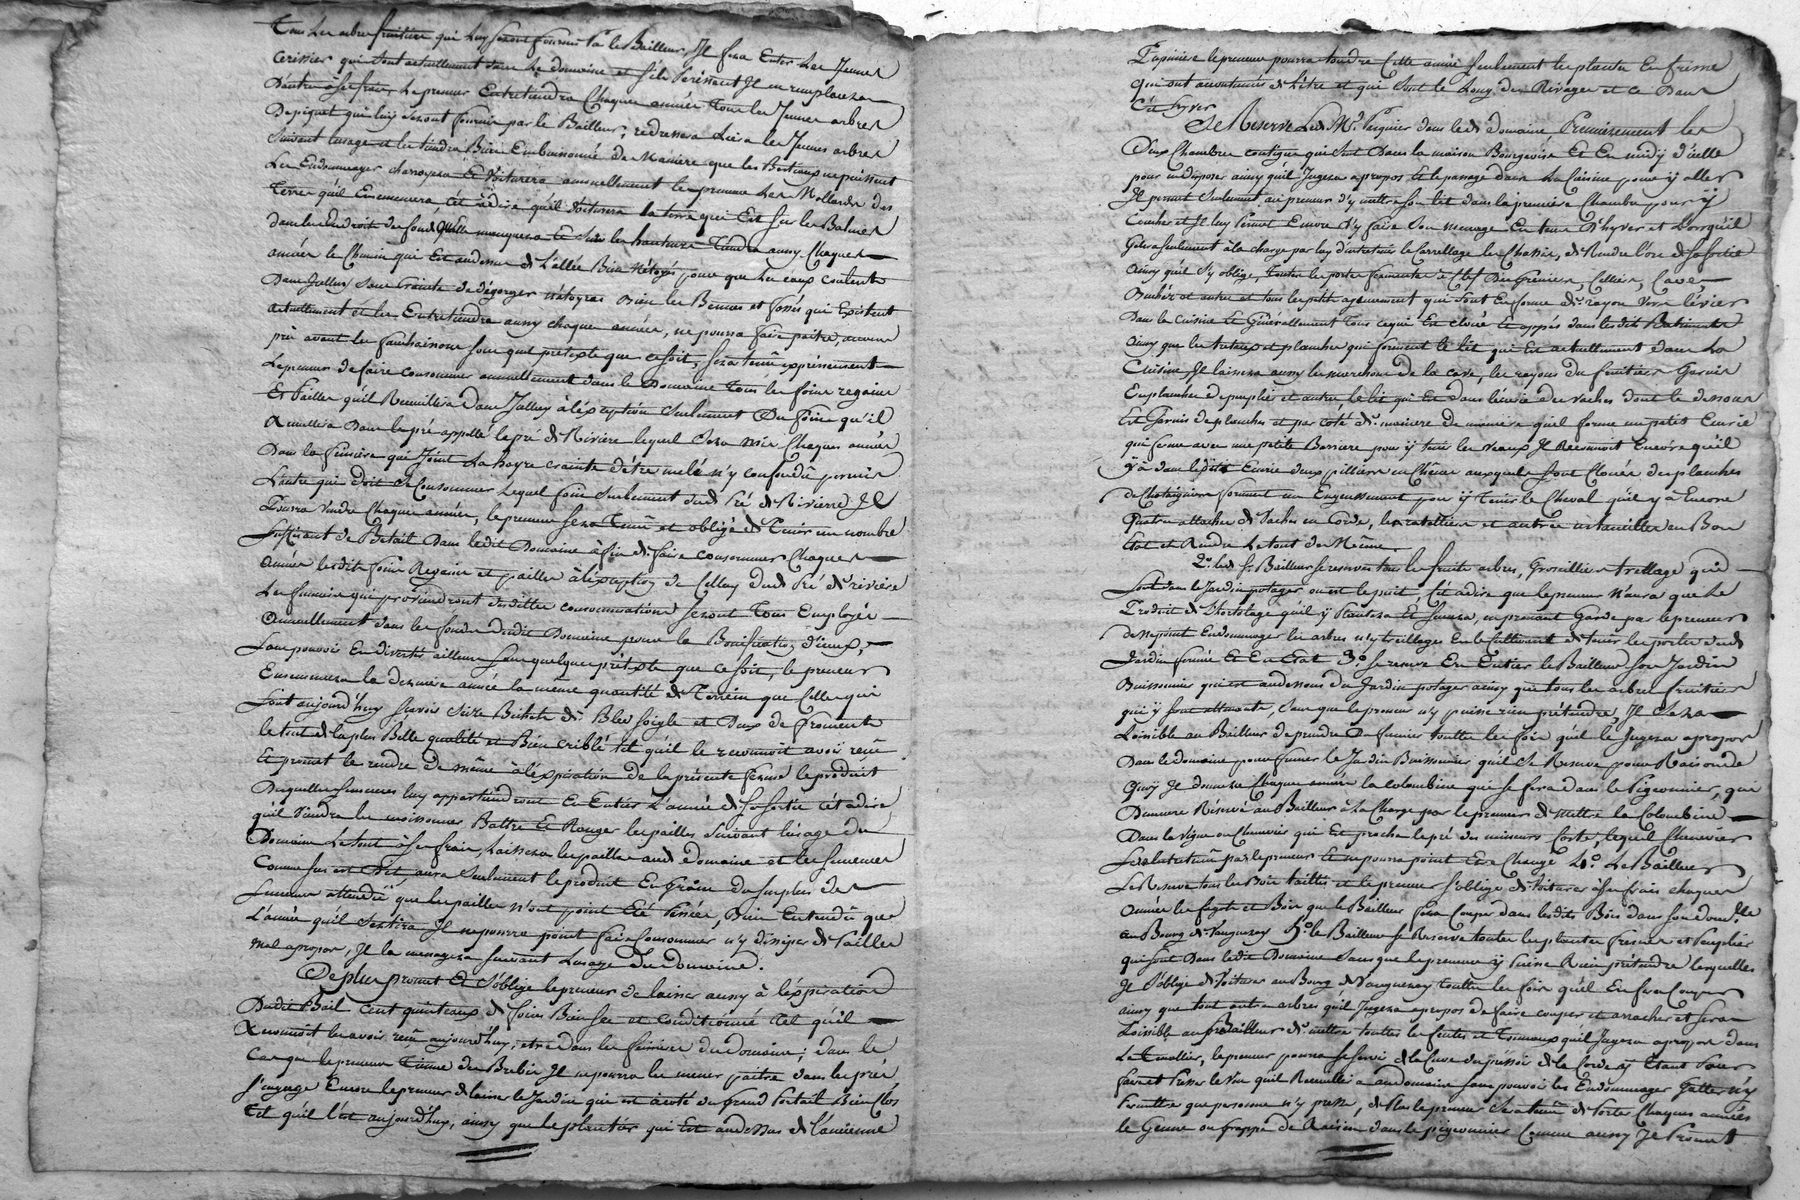 Tous les arbre fruitier qui luy seront fournis Par le Bailleur, Il fera Enter Les Jeunes
Cerisier qui sont actuellement dans Le domaine et s'ils Périssent Il en remplacera
D'autre à ses frais, Le preneur Entretiendra Chaque année Tous les Jeunes arbres
De piquet qui luy seront fournis par le Bailleur, redressera Liera les Jeunes arbres
Suivant l'usage et les tiendra Bien Embuissonnés de Maniere que les Bestiaux ne puissent
Les Endommager charroyera Et Voiturera annuellement le preneur Les Mollards des
Terres qu'il Ensemencera c'est à dire qu'il Voiturera la terre qui Est sur les Balmes
dans les Endroit de fond qu'elle manquera Et sur les hauteurs Tiendra aussy Chaques
année le Chemin qui Est au dessus de L'allée Bien Nétoyés pour que Les eaux coulent
Dans Jalluy Sans Crainte de dégorger nétoyera Bien les Bennes et fossés qui Existent
actuellement et les Entretiendra aussy chaque année, ne pourra faire paitre, aucun
prés avant les fauchaisons sous quel prétexte que ce soit; Sera tenû expréssement
Le preneur de faire Consommer annuellement dans le Domaine Tous les foins regains
Et Pailles qu'il Recueillera Dans Jalluy à l'éxception seulement Du Foin qu'il
Recueillera Dans le pré appellé le pré de Riviere lequel Sera mis Chaques année
Dans la feniere qui Joint La hayre crainte d'être melé n'y confondû parmis
L'autre qui doit se Consommer Lequel foin seulement dudt Pré de Rivierre Il
Pourra Vendre Chaque année, le preneur sera Tenû et obligé de Tenir un nombre
Suffisant de Betail Dans le dit Domaine à fin de faire consommer Chaques
Année lesdits foins Regains et pailles à l'éxception de Celluy dudt Pré de riviere
Les fumiers qui proviendront desdittes consommations seront Tous Employés
Annuellement dans les fonds dudit Domaine pour la Bonification d'iceux,
Sans pouvoir En divertir ailleurs sous quelque prétexte que ce soit, le preneur
Ensemencera la derniere année la même quantité de Terrein que Celle qui
sont aujourd'huy sçavoir seize Bichets de Bled soigle et Deux de froment
le tout de la plus Belle qualité et Bien criblé tel qu'il le reconnoit avoir reçû
Et promet le rendre de même à l'éxpiration de la présente ferme le produit
Desquelles semences luy appartiendront En Entier L'année de sa sortie c'ét adire
qu'il Viendra les moissonner Battre Et Ranger les pailles suivant l'usage du
Domaine Le tout à ses frais, Laissera les pailles audt domaine et les semences
Comme sus est Dit aura seulement le produit En Grain du surplus des
semences attendû que les pailles n'ont point Eté Pésées, Bien Entendû que
L'année qu'il sortira Il ne pourra point faire Consommer n'y dissiper de Pailles
mal apropos, Il la menagera suivant L'usage Du domaine.
De plus promet Et s'oblige le preneur de laisser aussy à l'éxpiration
Dudit Bail Cent quinteaux de foin Bien sec et conditionné tel qu'il
Reconnoit les avoir reçû aujourd'huy, être dans les fenieres du domaine; dans le
Cas que le preneur Tienne des Brebis Il ne pourra les mener paitre dans les prés
s'engage Encore le preneur de laisser le Jardin qui est à coté du grand Portail Bien Clos
Tel qu'il l'est aujourd'huy, ainsy que le plantier qui Est au dessus de l'ancienne
Pépiniere le preneur pourra tondre Cette année seulement les plantes En frisure
Qui ont accoutumés de L'être et qui sont le Long des Rivages et ce Dans
Cet hyver
Se Reserve Ledt Mr. Pasquier dans ledt domaine Premièrement les
Deux Chambres contigue qui sont Dans la maison Bourgeoise Et En midy d'icelle
pour en Disposer ainsy qu'il Jugera apropos Et le passage dans La Cuisine pour y aller
Il permet seulement au preneur d'y mettre son lit dans la premiere Chambre pour y
Coucher et Il luy Permet Encore d'y faire son menage En tems D'hyver et Lorsqu'il
Gelera seulement à la charge par luy d'entretenir le Carrellage les Chassis, de Rendre Lors de sa sortie
Ainsy qu'il s'y oblige, toutes les portes fermantes à Clef Du Grenier, Cellier, Cave
Bucher et autre et tous les petits agencement qui sont En forme de rayon Vers l'évier
Dans la Cuisine Et Générallement Tous ce qui Est cloué Et apposés dans les dits Batiments
Ainsy que les tréteaux et planches qui forment le lit qui Est actuellement dans La
Cuisine, Il laissera aussy les marchons de la cave, les rayons du fruitier Garnis
En planches de peuplier et autre le lit qui Est Dans l'écurie des vaches dont le dessous
Est Garnis de planches et par coté de maniere qu'il forme un petit Ecurie
qui ferme avec une petite Barriere pour y tenir les Veaux Il Reconnoit Encore qu'il
y à dans ledite Ecurie deux pilliers en Chêne auxquels sont Clouées des planches
de Chataigniers formant un Engencement pour y Tenir le Cheval qu'il y à Encore
Quatre attaches de Vaches en Corde, les ratelliers et autres ustensilles en Bon
Etat et Rendre Le tout de Même.
2° Ledt Sr. Bailleur se reserve tous les fruits arbres, Groseilliers treillage qui
sont dans le Jardin potager ou est le puit, C'ét adire que le preneur n'aura que Le
Produit de L'hortolage qu'il y Plantera Et semera, en prenant Garde par le preneur
de ne point Endommager les arbres n'y treillages En le Cultivant et tenir les portes dudt
Jardin fermée Et En Etat 3° se reserve En Entier le Bailleur son Jardin
Buissonnier qui est au dessous du Jardin potager ainsy que tous les arbres fruitiers
qui y sont attenants, sans que le preneur n'y puisse rien prétendre, Il Sera
Loisible au Bailleur de prendre du fumier toutes les fois qu'il le Jugera apropos
Dans le domaine pour fumer le Jardin Buissonnier qu'il se Reserve pour Raison de
Quoy Il donnera Chaque année la Colombine qui se fera dans le Pigeonnier, qui
Demeure Réservé au Bailleur à la Charge par le preneur de mettre la Colombine
Dans la Vigne ou Chenevier qui Est proche le pré des mineurs Corte, lequel Chenevier
Sera Entretenû par le preneur Et ne pourra point Etre Changé 4° Le Bailleur
se Reserve tous les Bois taillis et le preneur s'oblige de Voiturer à ses frais chaques
Année les fagots et Bois que le Bailleur fera Couper dans lesdits Bois dans son domicile
au Bourg de Vaugneray 5° le Bailleur se Reserve toutes les plantes fresnes et Peuplier
qui sont Dans ledit Domaine Sans que le preneur y Puisse Rien prétendre lesquelles
Il s'oblige de Voiturer au Bourg de Vaugneray toutes les fois qu'il En fera Couper
ainsy que tout autre arbres qu'il Jugera apropos de faire couper et arracher et sera
Loisible au Bailleur de mettre toutes les futes et Tonneaux qu'il Jugera apropos dans
Le Tinallier, le preneur pourra se servir de la Cuve du pressoir de la Corde y Etant Pour
faire et Presser le Vin qu'il Recueillera au domaine sans pouvoir les Endommager Gatter n'y
Permettre que personne n'y presse, de Plus le preneur Sera tenû de Porter Chaques années
le Genne ou frappe de Raisin dans le pigeonnier Comme aussy Il Promet